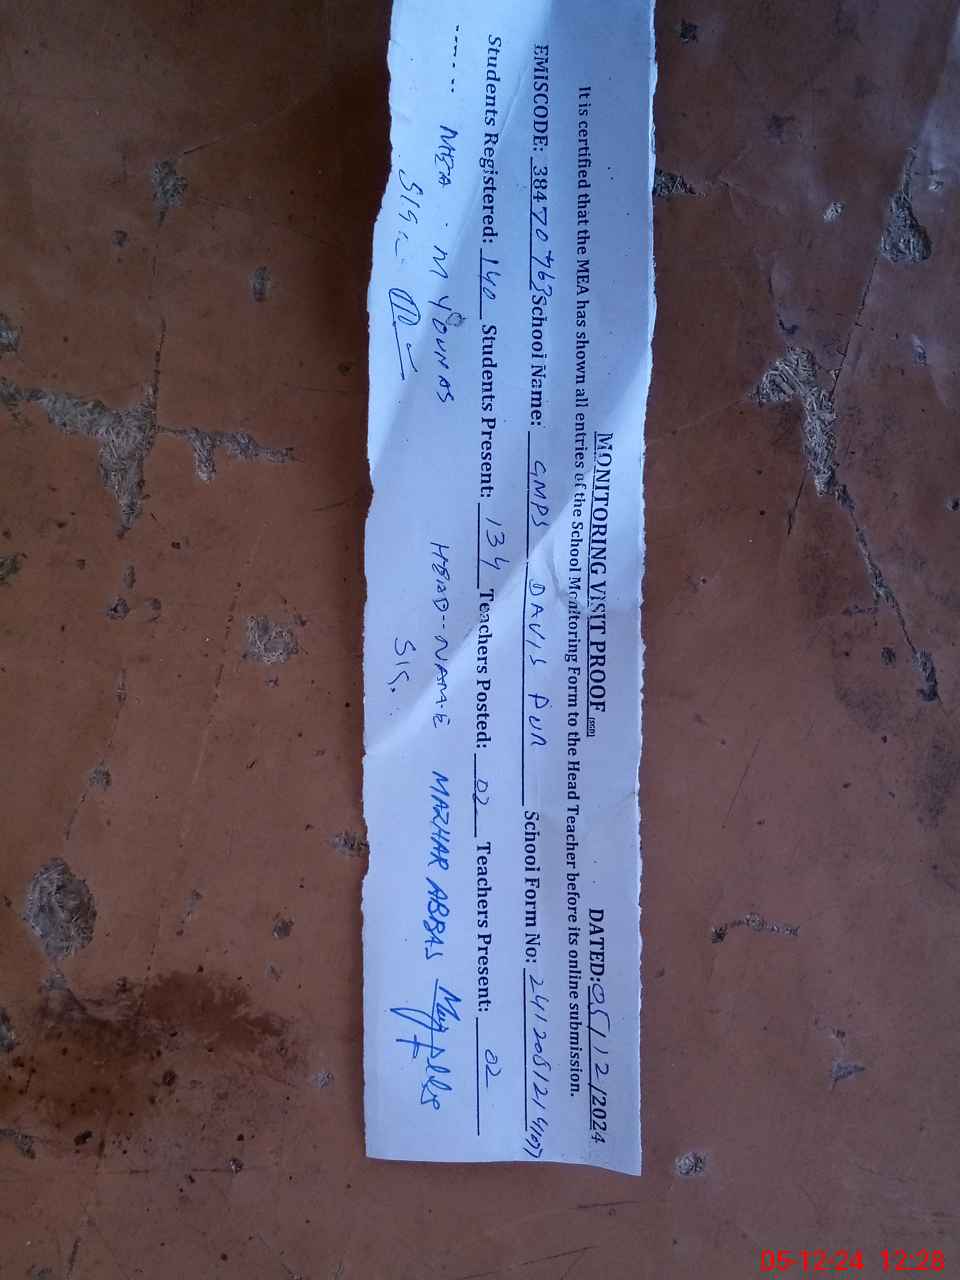 MONITORING VISIT PROOF (SGD) DATED: 05/12/2024
It is certified that the MEA has shown all entries of the School Monitoring Form to the Head Teacher before its online submission.
EMISCODE: 38470763 School Name: GMPS DAVIS PUR School Form No:
Students Registered: 140 Students Present: 134 Teachers Posted: 02 Teachers Present: 02
MEA . M YOUNAS HEAD-NAME MAZHAR ABBAS
SIG
05-12-24 12:28